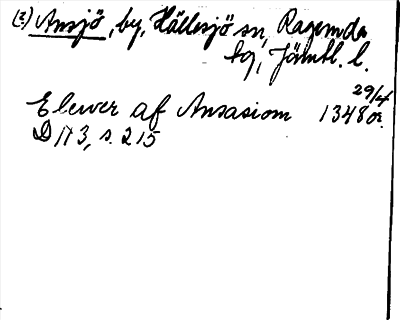 (2) Ansjö, by, Hällesjö sn, Ragunda
tg, Jämtl. l.
29/4
Elewer af Ansasiom 1348 or.
D N 3, s. 215